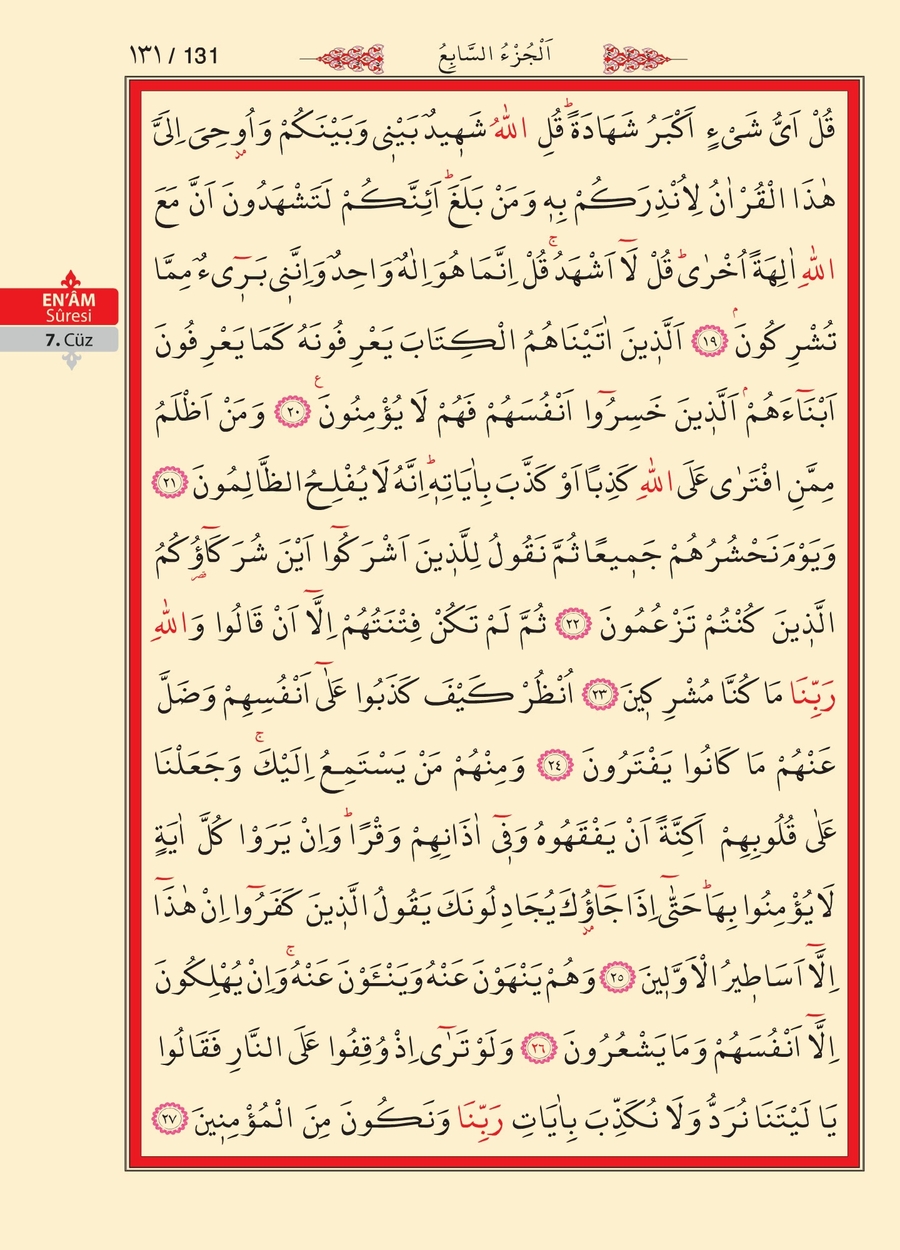 ١٣١ / 131
اَلْجُزْءُ السَّابِعُ
EN’ÂM
Sûresi
7. Cüz
قُلْ اَىُّ شَىْءٍ اَكْبَرُ شَهَادَةًۜ قُلِ اللّٰهُ شَه۪يدٌ بَيْن۪ى وَبَيْنَكُمْ وَاُو۫حِىَ اِلَىَّ
هٰذَا الْقُرْاٰنُ لِاُنْذِرَكُمْ بِه۪ وَمَنْ بَلَغَۜ اَئِنَّكُمْ لَتَشْهَدُونَ اَنَّ مَعَ
اللّٰهِ اٰلِهَةً اُخْرٰىۜ قُلْ لَٓا اَشْهَدُۚ قُلْ اِنَّمَا هُوَ اِلٰهٌ وَاحِدٌ وَاِنَّن۪ى بَر۪ٓىءٌ مِمَّا
تُشْرِكُونَۢ ﴿١٩﴾ اَلَّذ۪ينَ اٰتَيْنَاهُمُ الْكِتَابَ يَعْرِفُونَهُ كَمَا يَعْرِفُونَ
اَبْنَٓاءَهُمْۢ اَلَّذ۪ينَ خَسِرُٓوا اَنْفُسَهُمْ فَهُمْ لَا يُؤْمِنُونَ ع ﴿٢٠﴾ وَمَنْ اَظْلَمُ
مِمَّنِ افْتَرٰى عَلَى اللّٰهِ كَذِبًا اَوْ كَذَّبَ بِاٰيَاتِه۪ۜ اِنَّهُ لَا يُفْلِحُ الظَّالِمُونَ ﴿٢١﴾
وَيَوْمَ نَحْشُرُهُمْ جَم۪يعًا ثُمَّ نَقُولُ لِلَّذ۪ينَ اَشْرَكُٓوا اَيْنَ شُرَكَٓاؤُ۬كُمُ
الَّذ۪ينَ كُنْتُمْ تَزْعُمُونَ ﴿٢٢﴾ ثُمَّ لَمْ تَكُنْ فِتْنَتُهُمْ اِلَّٓا اَنْ قَالُوا وَاللّٰهِ
رَبِّنَا مَا كُنَّا مُشْرِك۪ينَ ﴿٢٣﴾ اُنْظُرْ كَيْفَ كَذَبُوا عَلٰٓى اَنْفُسِهِمْ وَضَلَّ
عَنْهُمْ مَا كَانُوا يَفْتَرُونَ ﴿٢٤﴾ وَمِنْهُمْ مَنْ يَسْتَمِعُ اِلَيْكَۚ وَجَعَلْنَا
عَلٰى قُلُوبِهِمْ اَكِنَّةً اَنْ يَفْقَهُوهُ وَف۪ٓى اٰذَانِهِمْ وَقْرًاۜ وَاِنْ يَرَوْا كُلَّ اٰيَةٍ
لَا يُؤْمِنُوا بِهَاۜ حَتّٰٓى اِذَا جَٓاؤُ۫كَ يُجَادِلُونَكَ يَقُولُ الَّذ۪ينَ كَفَرُٓوا اِنْ هٰذَٓا
اِلَّٓا اَسَاط۪يرُ الْاَوَّل۪ينَ ﴿٢٥﴾ وَهُمْ يَنْهَوْنَ عَنْهُ وَيَنْـَٔوْنَ عَنْهُۚ وَاِنْ يُهْلِكُونَ
اِلَّٓا اَنْفُسَهُمْ وَمَا يَشْعُرُونَ ﴿٢٦﴾ وَلَوْ تَرٰٓى اِذْ وُقِفُوا عَلَى النَّارِ فَقَالُوا
يَا لَيْتَنَا نُرَدُّ وَلَا نُكَذِّبَ بِاٰيَاتِ رَبِّنَا وَنَكُونَ مِنَ الْمُؤْمِن۪ينَ ﴿٢٧﴾